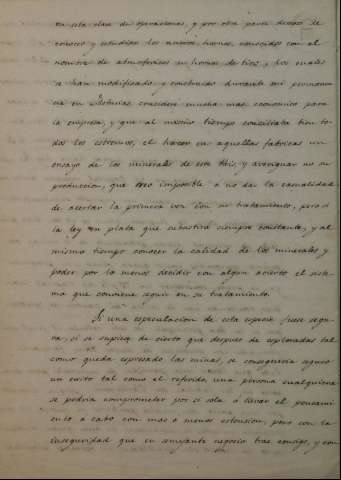 en esta clase de operaciones, y por otra parte deseoso de
conocer y estudiar los nuevos hornos, conocidos con el
nombre de atmosfericos ú hornos de tiro, y los cuales
se han modificado y construido durante mi permanen
cia en Asturias considere mucho mas economico para
la empresa, y que al mismo tiempo conciliaba bien to
dos los estremos, el hacer en aquellas fabricas un
ensayo de los minerales de este País, y averiguar no su
produccion, que creo imposible á no dar la casualidad
de acertar la primera vez con su tratamiento, pero si
la ley en plata que siempre constante, y al
mismo tiempo conocer la calidad de los minerales y
poder por lo menos decidir con algun acierto el siste-
ma que conviene seguir en su tratamiento.
Si una especulacion de esta especie fuese segu-
ra, si se supiese de cierto que despues de esploradas tal
como queda espresado las minas, se conseguiria seguro
un exito tal como el referido, una persona cualquiera
se podria comprometer por si sola á llevar el pensami
ento á cabo con mas ó menos estension, pero con la
inseguridad que en semejante negocio trae consigo, y con